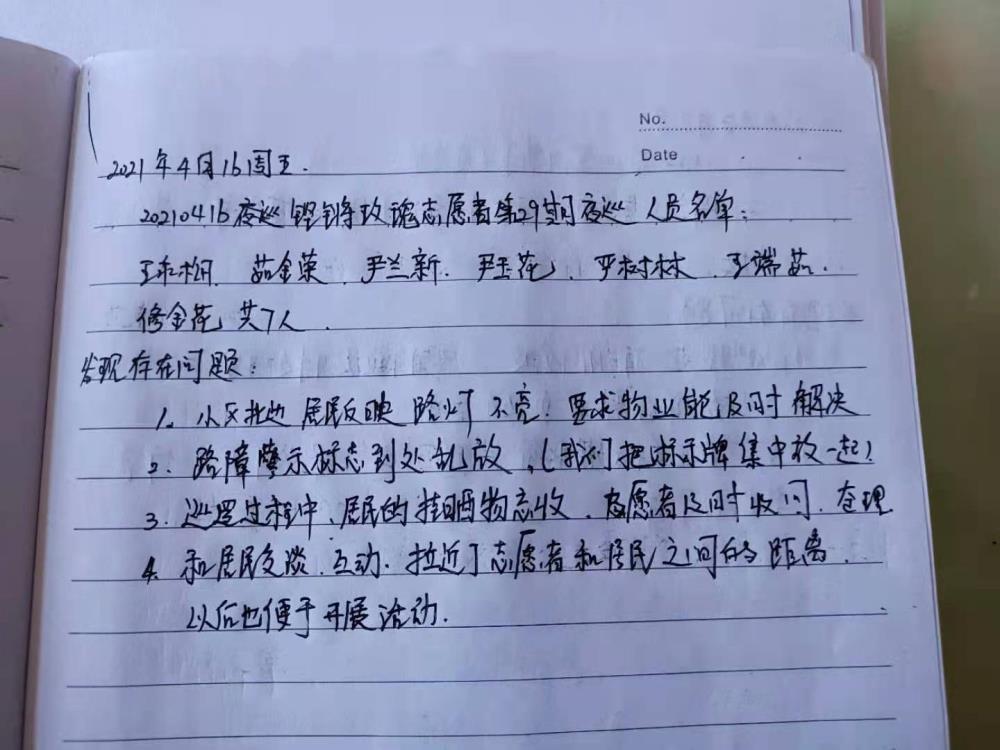 No.
Date
2021年4月16周五.
20210416夜巡铿锵玫瑰志愿者第29期夜巡人员名单:
茹金荣、尹兰新、尹玉花、严树林、王瑞茹.
修金花,共7人.
发现存在问题:
1. 小区北边居民反映路灯不亮.要求物业能及时解决
2. 路障警示标志到处乱放,(我们把标示牌集中放一起)
3. 巡逻过程中,居民的挂晒物忘收,志愿者及时收回.
4. 和居民交谈.互动.拉近了志愿者和居民之间的距离.
以后也便于开展活动.